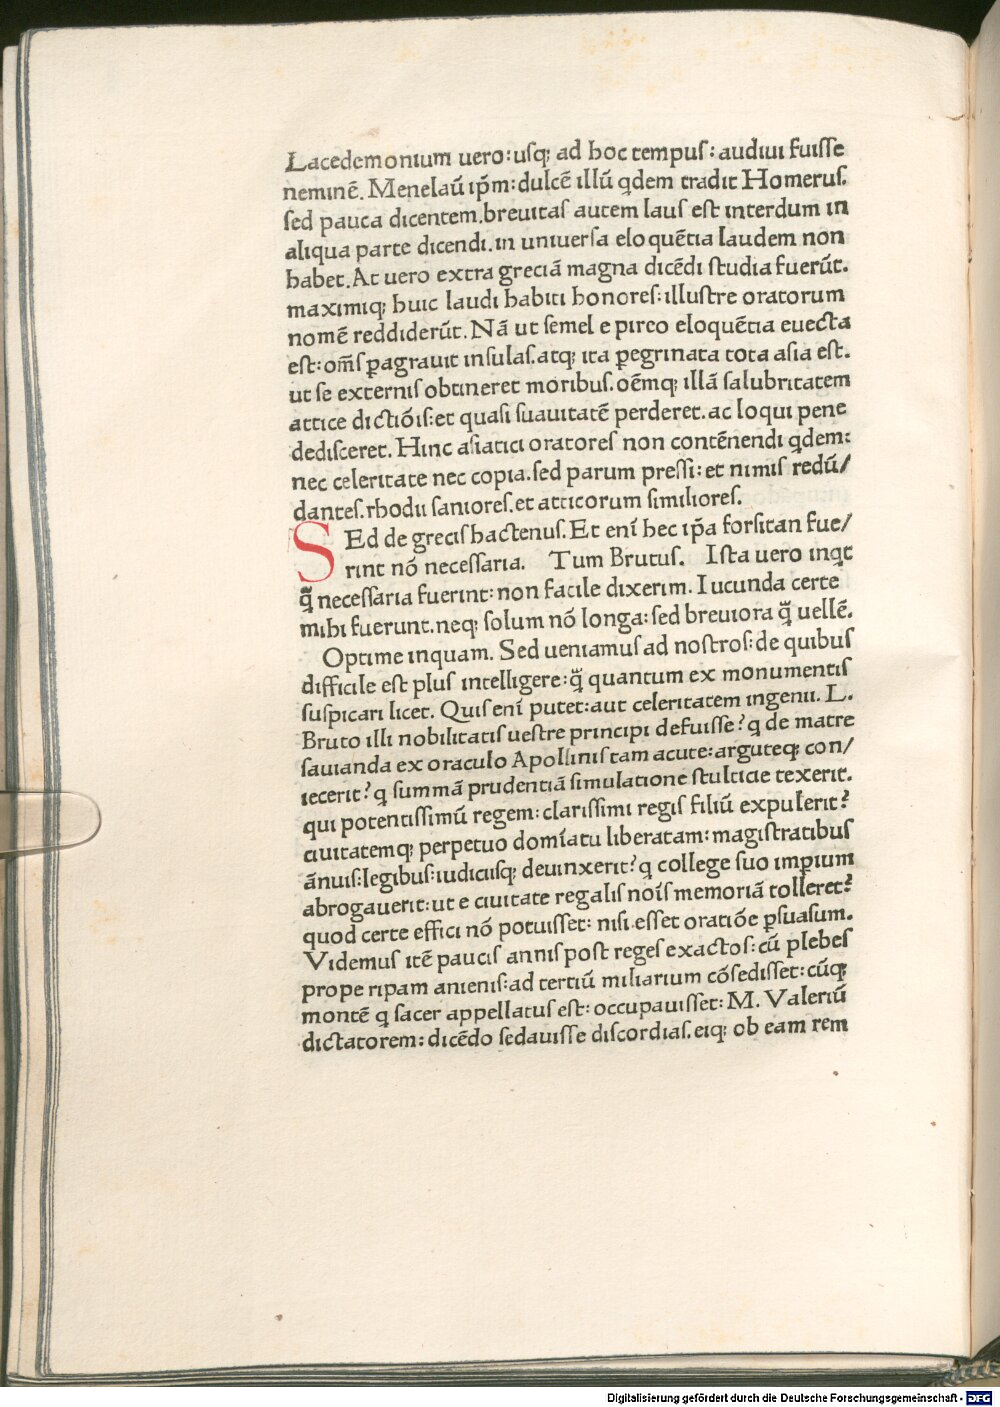 Lacedemonium uero: uſq; ad hoc tempus: audiui fuiſſe
neminē. Menelaū ip̄m: dulcē illū qdem tradit Homerus.
ſed pauca dicentem. breuitas autem laus eſt interdum in
aliqua parte dicendi. in uniuerſa eloquētia laudem non
habet. At uero extra greciā magna dicēdi ſtudia fuerūt.
maximiq; huic laudi habiti honores: illuſtre oratorum
nomē reddiderūt. Nā ut ſemel e pireo eloquētia euecta
eſt: om̄s ꝑagrauit inſulas. atq; ita ꝑegrinata tota aſia eſt.
ut ſe externis obtineret moribus. oēmq; illā ſalubritatem
attice dictiōis: et quaſi ſuauitatē perderet. ac loqui pene
dediſceret. Hinc aſiatici oratores non contēnendi qdem:
nec celeritate nec copia. ſed parum preſſi: et nimis redū/
dantes. rhodii ſaniores. et atticorum ſimiliores.
SEd de grecis hactenus. Et enī hec ip̄a forſitan fue/
rint nō neceſſaria. Tum Brutus. Iſta uero inqt
q̃ neceſſaria fuerint: non facile dixerim. Iucunda certe
mihi fuerunt. neq; ſolum nō longa: ſed breuiora q̃ uellē.
Optime inquam. Sed ueniamus ad noſtros: de quibus
difficile eſt plus intelligere: q̃ quantum ex monumentis
ſuſpicari licet. Quis enī putet: aut celeritatem ingenii. L.
Bruto illi nobilitatis ueſtre principi defuiſſe? q de matre
ſauianda ex oraculo Apollinis tam acute: arguteq; con/
iecerit? q ſummā prudentiā ſimulatione ſtulticie texerit.
qui potentiſſimū regem: clariſſimi regis filiū expulerit?
ciuitatemq; perpetuo domīatu liberatam: magiſtratibus
ānuis: legibus: iudiciisq; deuinxerit? q college ſuo imꝑium
abrogauerit: ut e ciuitate regalis noīs memoriā tolleret?
quod certe effici nō potuiſſet: niſi eſſet oratiōe ꝑſuaſum.
Videmus itē paucis annis poſt reges exactos: cū plebes
prope ripam anienis: ad tertiū miliarium cōſediſſet: cūq;
montē q ſacer appellatus eſt: occupauiſſet: M. Valeriū
dictatorem: dicēdo ſedauiſſe diſcordias. eiq; ob eam rem
Digitalisierung gefördert durch die Deutsche Forschungsgemeinschaft - DFG